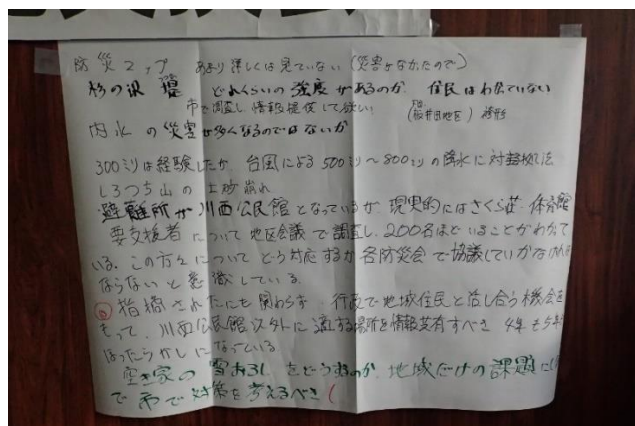 防災マップ あまり詳しくは見ていない(災害がなかたので)
杉の沢 堤 どれくらいの強度があるのか 住民はわかていない
市で調査し、情報提供して欲しい!
内水の災害が多くなるのではないか
300ミリは経験したが、台風による500ミリ〜800ミリの降水に対
しろつち山の土砂崩れ
避難所が川西公民館となっているが、現実的にはさくら荘、体育館
要支援者について地区会議で調査し、200名ほどいることがわかて
いる。この方々についてどう対応するか各防災会で協議していかなければ
ならないと意識している。
指摘されたにも関わらず、行政で地域住民と話し合う機会を
もって、川西公民館以外に適する場所を情報共有すべき 4年も5年も
ほったらかしになっている
空き家の雪おろしをどうするのか、地域だけの課題に
で市で対策を考えるべき